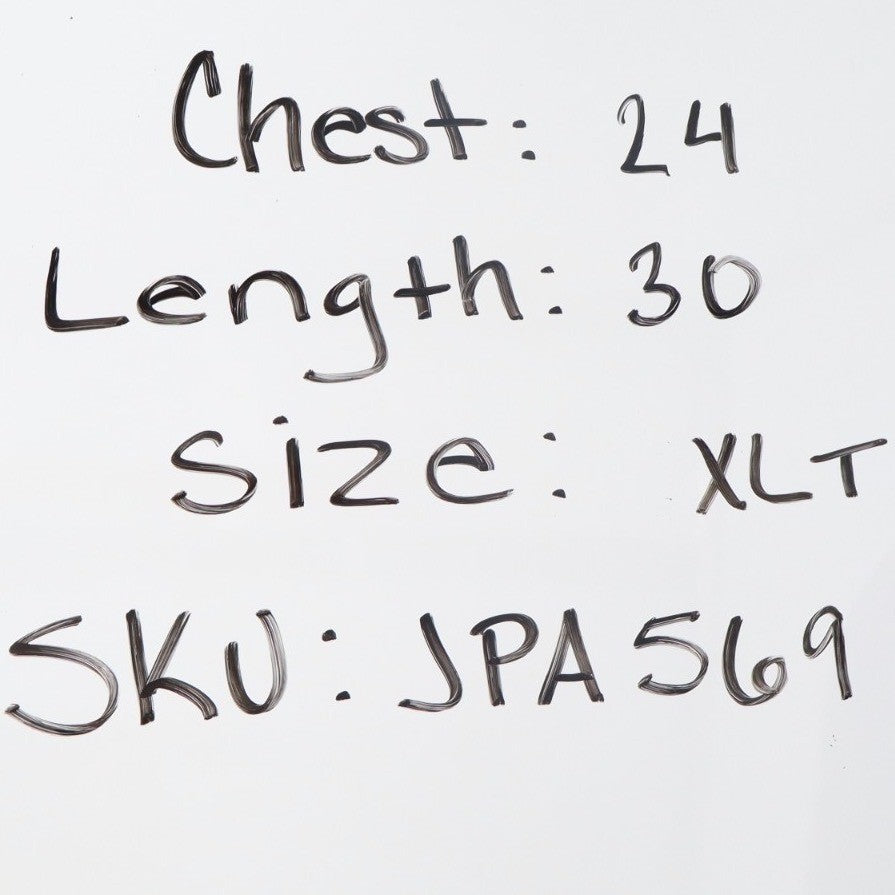 Chest: 24
Length: 30
Size: XLT
SKU: JPA569